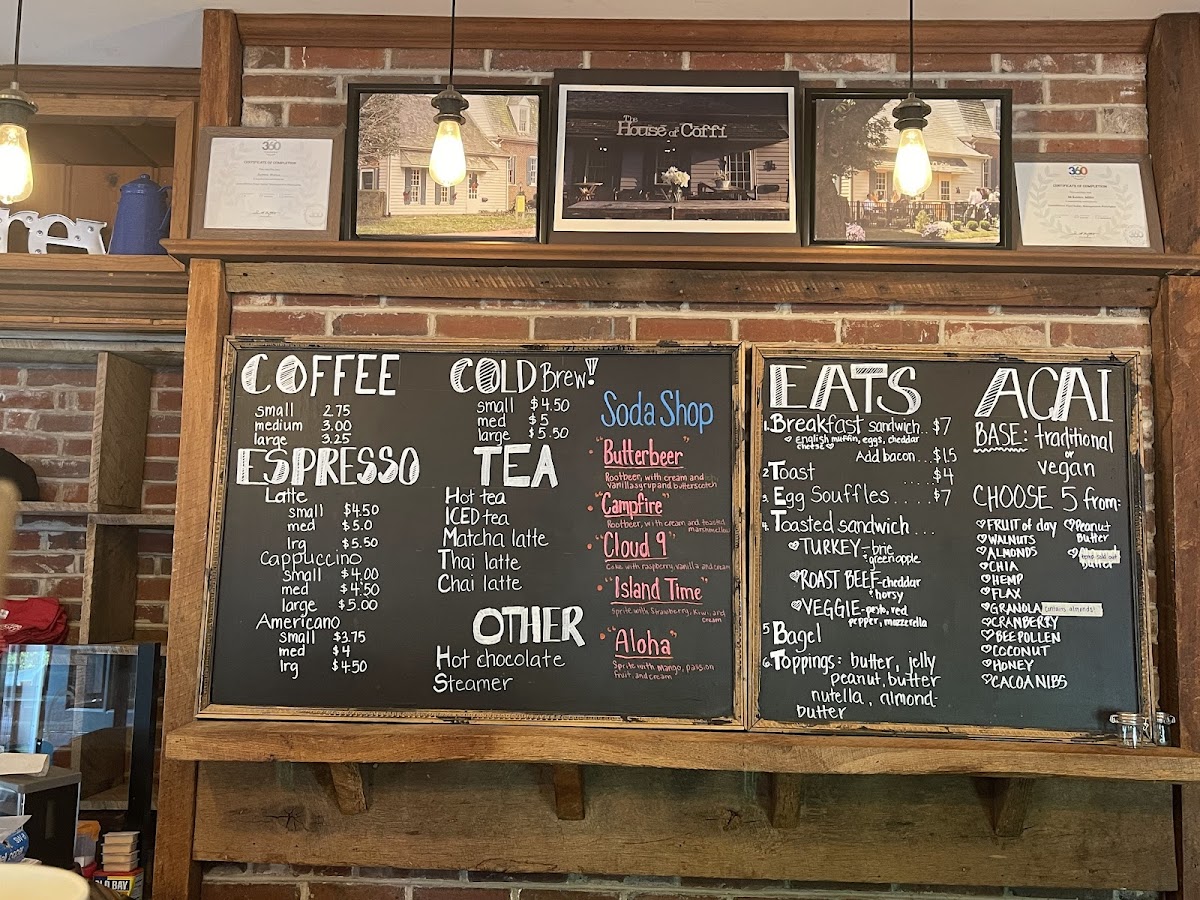 The
House of Coffi
360
CERTIFICATE OF COMPLETION
360
CERTIFICATE OF COMPLETION
COFFEE
small 2.75
medium 3.00
large 3.25
ESPRESSO
Latte
small $4.50
med $5.0
lrg $5.50
Cappuccino
small $4.00
med $4.50
large $5.00
Americano
small $3.75
med $4
lrg $4.50
COLD Brew!!
small $4.50
med $5
large $5.50
TEA
Hot tea
ICED tea
Matcha latte
Thai latte
Chai latte
OTHER
Hot chocolate
Steamer
Soda Shop
"Butterbeer"
Rootbeer, with cream and
vanilla syrup and butterscotch
"Campfire"
Rootbeer, with cream and toasted
marshmellow
"Cloud 9"
Coke with raspberry, vanilla and cream
"Island Time"
Sprite with Strawberry, Kiwi, and
cream
"Aloha"
Sprite with Mango, passion
fruit, and cream
EATS
1. Breakfast sandwich.. $7
english muffin, eggs, cheddar
cheese
Add bacon...$1.5
2. Toast $4
3. Egg Souffles..... $7
4. Toasted sandwich...
TURKEY-brie
+ green apple
ROAST BEEF-cheddar
+ horsy
VEGGIE-pesto, red
pepper, mozzerella
5. Bagel
6. Toppings: butter, jelly
peanut, butter
nutella, almond-
butter
ACAI
BASE: traditional
or
vegan
CHOOSE 5 from:
FRUIT of day
WALNUTS
ALMONDS
CHIA
HEMP
FLAX
GRANOLA contains almonds!
CRANBERRY
BEE POLLEN
COCONUT
HONEY
CACOA NIBS
Peanut
Butter
sold out
Butter
OLD BAY